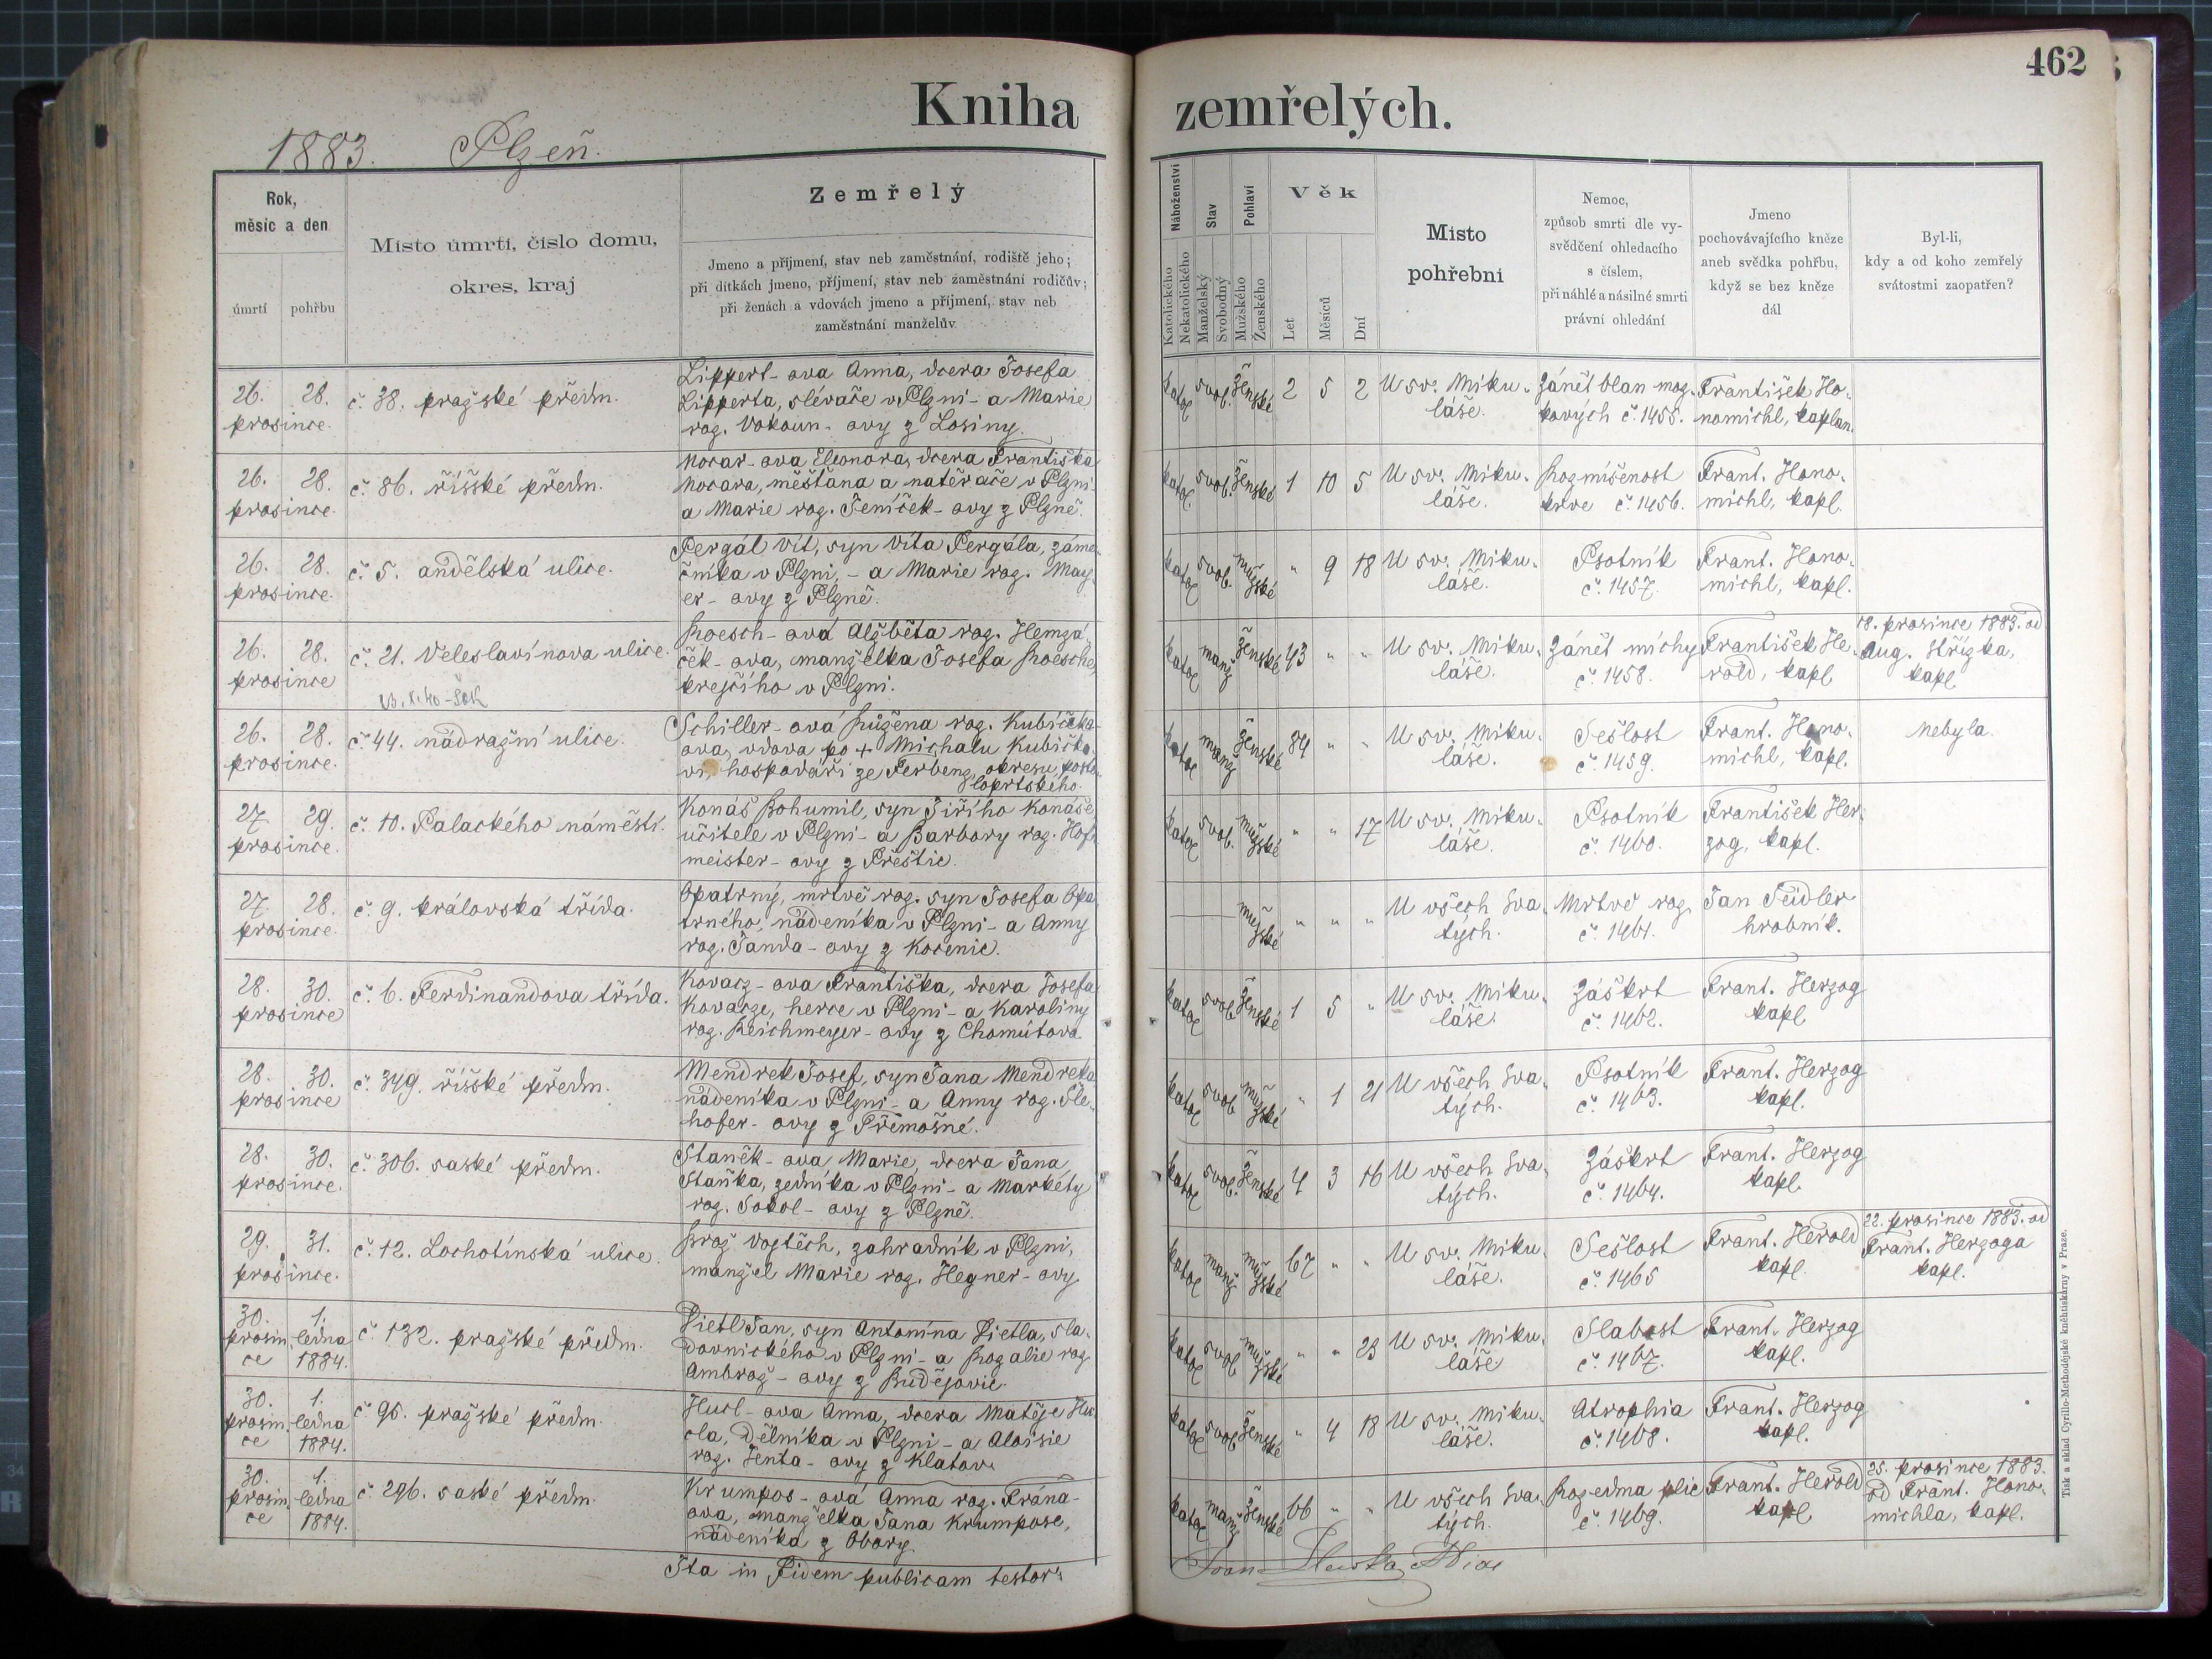 462
Kniha zemřelých.
1883. Plzeň.
Rok,
měsíc a den
úmrtí pohřbu
Místo úmrtí, číslo domu,
okres, kraj
Zemřelý
Jmeno a příjmení, stav neb zaměstnání, rodiště jeho;
při dítkách jmeno, příjmení, stav neb zaměstnání rodičův;
při ženách a vdovách jmeno a příjmení, stav neb
zaměstnání manželův
Náboženství
Katolického
Nekatolického
Stav
Manželský
Svobodný
Pohlaví
Mužského
Ženského
Věk
Let
Měsíců
Dní
Místo
pohřební
Nemoc,
způsob smrti dle vy-
svědčení ohledacího
s číslem,
při náhlé a násilné smrti
právní ohledání
Jmeno
pochovávajícího kněze
aneb svědka pohřbu,
když se bez kněze
dál
Byl-li,
kdy a od koho zemřelý
svátostmi zaopatřen?
26. 28.
prosince.
č. 38. pražské předm.
Lippert-ova Anna, dcera Josefa
Lipperta, slévače v Plzni - a Marie
roz. Vokoun-ovy z Losiny.
katol svob. ženské 2 5 2
U sv. Miku-
láše.
Zánět blan moz-
kových č. 1455.
František Ho-
nomichl, kaplan.
26. 28.
prosince.
č. 86. říšské předm.
Nocar-ova Eleonora, dcera Františka
Nocara, měšťana a natěrače v Plzni
a Marie roz. Jeníček-ovy z Plzně.
katol svob. ženské 1 10 5
U sv. Miku-
láše.
Rozmíšenost
krve č. 1456.
Frant. Hono-
michl, kapl.
26. 28.
prosince.
č. 5. andělská ulice.
Pergál Vít, syn Víta Pergála, záme-
čníka v Plzni, - a Marie roz. May-
er-ovy z Plzně.
katol svob. mužské " 9 18
U sv. Miku-
láše.
Psotník
č. 1457.
Frant. Hono-
michl, kapl.
26. 28.
prosince
č. 21. Veleslavínova ulice.
Roesch-ová Alžběta roz. Hemzá-
ček-ova, manželka Josefa Roesche,
krejčího v Plzni.
katol manž ženské 43 " "
U sv. Miku-
láše.
Zánět míchy
č. 1458.
František He-
rold, kapl
18. prosince 1883. od
Aug. Střízka,
kapl
26. 28.
prosince.
č. 44. nádražní ulice.
Schiller-ová Růžena roz. Kubíčka-
ova, vdova po + Michalu Kubíčko-
vi, hospodáři ze Ferbenz, okresu posto-
loprtského.
katol manž ženské 84 " "
U sv. Miku-
láše.
Sešlost
č. 1459.
Frant. Hono-
michl, kapl.
Nebyla.
27. 29.
prosince.
č. 10. Palackého náměstí.
Konáš Bohumil, syn Jiřího Konáše
učitele v Plzni - a Barbory roz. Hof-
meister-ovy z Přeštic.
katol svob. mužské " " 17
U sv. Miku-
láše.
Psotník
č. 1460.
František Her-
zog, kapl.
27. 28.
prosince.
č. 9. královská třída.
Opatrný, mrtvě roz. syn Josefa Opa-
trného, nádeníka v Plzni - a Anny
roz. Janda-ovy z Kocenic.
mužské " " "
U všech Sva-
tých.
Mrtvě roz.
č. 1461.
Jan Seidler
hrobník.
28. 30.
prosince
č. 6. Ferdinandova třída.
Kovacz-ova Františka, dcera Josefa
Kovacze, herce v Plzni - a Karoliny
roz. Reichmeyer-ovy z Chomútova.
katol svob ženské 1 5 "
U sv. Miku-
láše.
Záškrt
č. 1462.
Frant. Herzog
kapl
28. 30.
prosince
č. 349. říšské předm.
Mendrek Josef, syn Jana Mendreka
nádeníka v Plzni - a Anny roz. Ple-
hofer-ovy z Třemošné.
katol svob mužské " 1 21
U všech Sva-
tých.
Psotník
č. 1463.
Frant. Herzog
kapl.
28. 30.
prosince.
č. 306. saské předm.
Staněk-ova Marie, dcera Jana
Staňka, zedníka v Plzni - a Markéty
roz. Sokol-ovy z Plzně.
katol svob. ženské 4 3 16
U všech Sva-
tých.
Záškrt
č. 1464.
Frant. Herzog
kapl.
29. 31.
prosince.
č. 12. Lochotínská ulice.
Brož Vojtěch, zahradník v Plzni,
manžel Marie roz. Hegner-ovy.
katol manž mužské 67 " "
U sv. Miku-
láše.
Sešlost
č. 1465
Frant. Herold
kapl.
22. prosince 1883. od
Frant. Herzoga
kapl.
30. 1.
prosin- ledna
ce 1884.
č. 132. pražské předm.
Dietl Jan, syn Antonína Dietla, sla-
dovnického v Plzni - a Rozalie roz
Ambrož-ovy z Budějovic.
katol svob mužské " " 23
U sv. Miku-
láše
Slabost
č. 1467.
Frant. Herzog
kapl.
30. 1.
prosin- ledna
ce 1884.
č. 96. pražské předm.
Hucl-ova Anna, dcera Matěje Hu-
cla, dělníka v Plzni - a Aloisie
roz. Jenta-ovy z Klatov.
katol svob ženské " 4 18
U sv. Miku-
láše.
Atrophia
č. 1468.
Frant. Herzog
kapl.
30. 1.
prosin- ledna
ce 1884.
č. 296. saské předm.
Krumpos-ová Anna roz. Frána-
ova, manželka Jana Krumpose,
nádeníka z Obory.
katol manž ženské 66 " "
U všech Sva-
tých.
Rozedma plic
č. 1469.
Frant. Herold
kapl
25. prosince 1883.
od Frant. Hono-
michla, kapl.
Ita in Fidem publicam testor:
Tisk a sklad Cyrillo-Methodějské knihtiskárny v Praze.